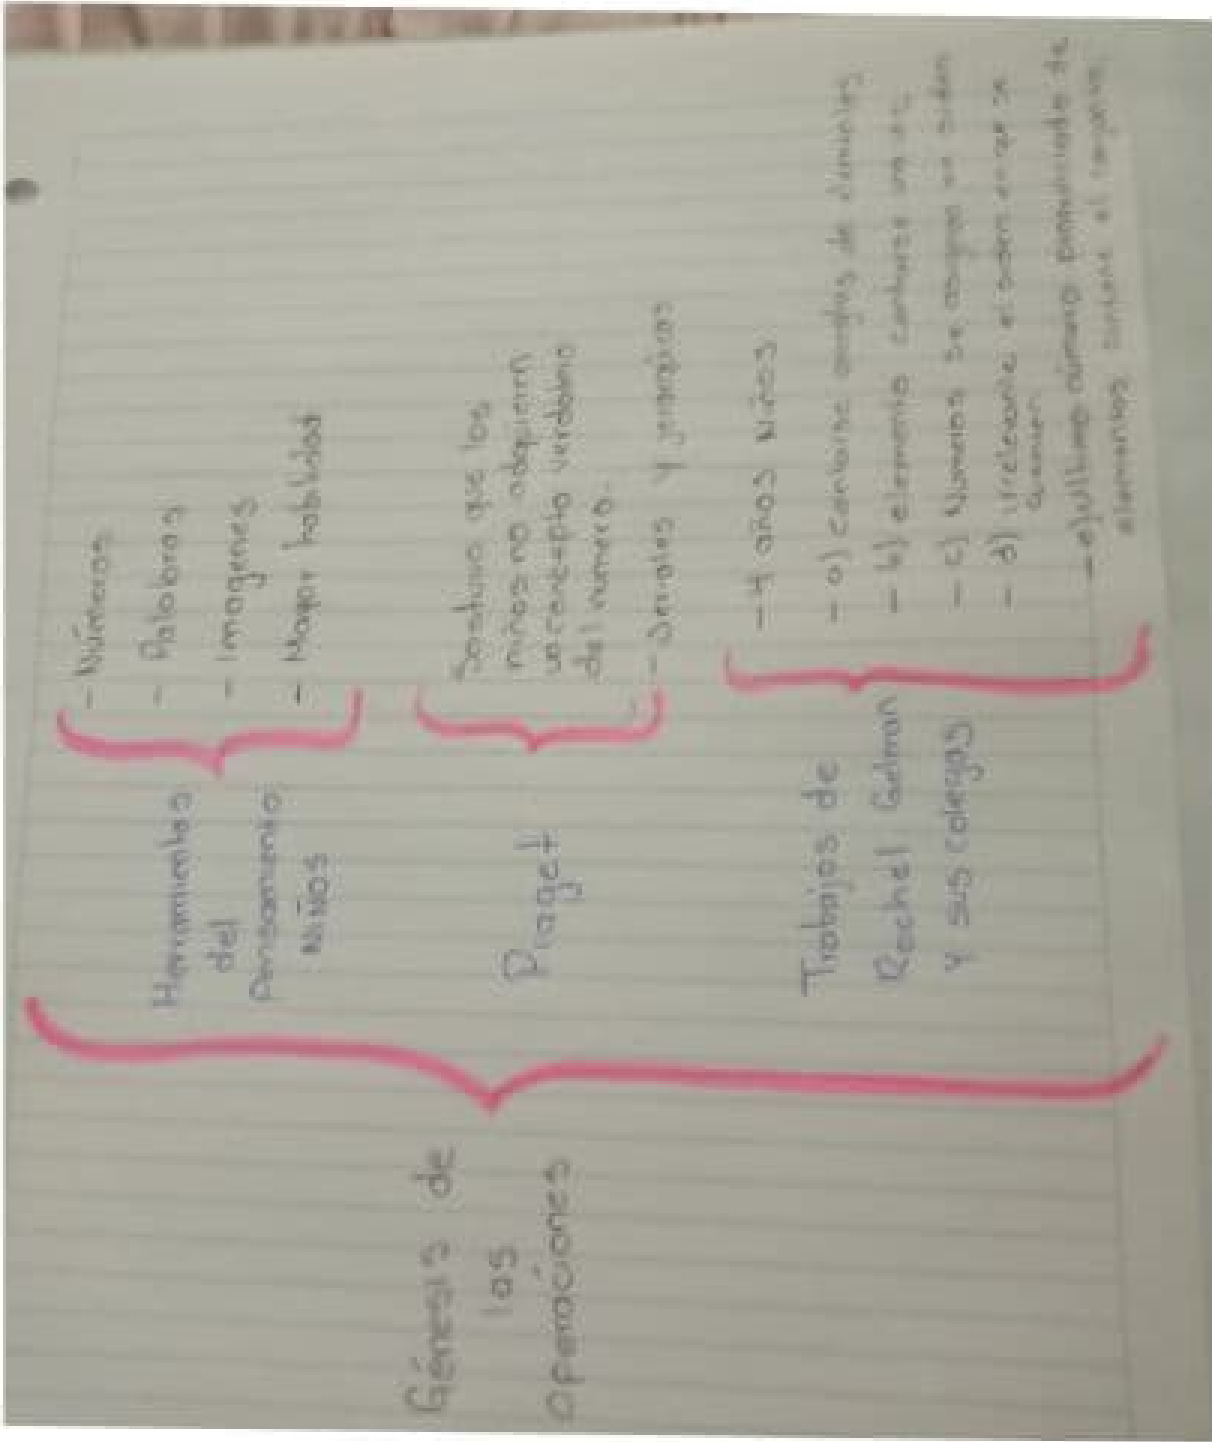 Génesis de
las
operaciones
Herramientas
del
Pensamiento
NIÑOS
- Números
- Palabras
- Imagenes
- Mayor habilidad
Piaget
Sostuvo que los
niños no adquieren
un concepto verdadero
del número.
- Seriales y jerarquicas
Trabajos de
Rochel Gelman
y sus colegas
- 4 años Niños
- a) contarse arreglos de elementos
- b) elemento contarse una vez
- c) Numeros se asignan en orden
- d) irrelevante el orden en que se
- e) ultimo número pronunciado de
elementos contiene el conjunto.